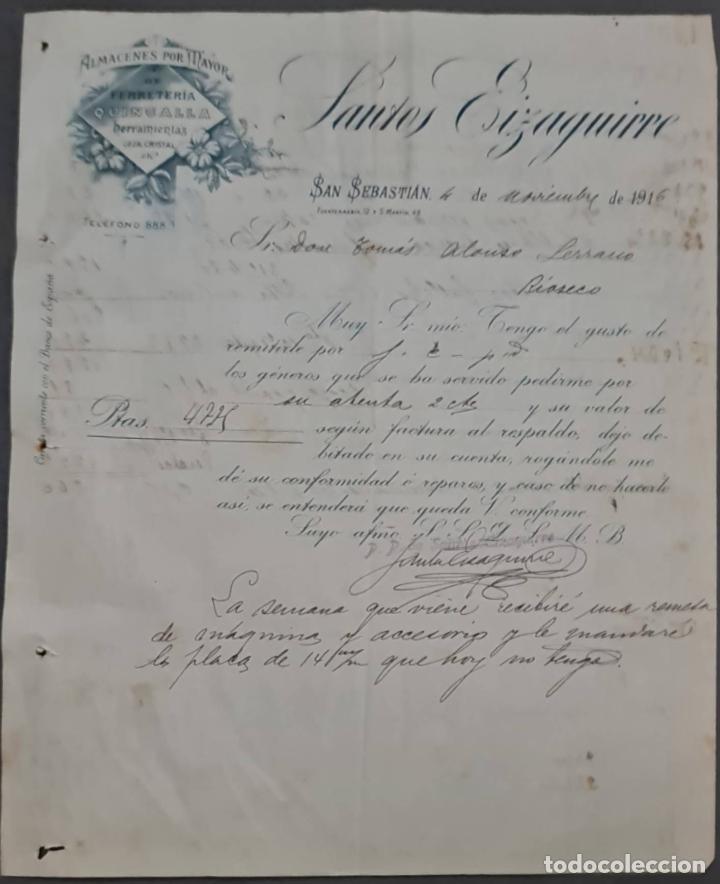 ALMACENES POR MAYOR
DE
FERRETERÍA
QUINCALLA
herramientas
LOZA, CRISTAL
TELÉFONO 888
Santos Eizaguirre
SAN SEBASTIÁN, 4 de noviembre de 1916
FUENTERRABÍA, 12 Y S. MARTÍN, 49
Sr. Don Tomás Alonso Serrano
Rioseco
Muy Sr. mío: Tengo el gusto de
remitirle por
los géneros que se ha servido pedirme por
su atenta 2 cte y su valor de
Ptas. 4725
según factura al respaldo, dejo de-
bitado en su cuenta, rogándole me
dé su conformidad ó reparos, y caso de no hacerlo
así, se entenderá que queda V. conforme.
Suyo afmo. y S. S. Q. S. M. B.
Cuenta corriente en el Banco de España
La semana que viene recibiré una remesa
de máquina y accesorio y le mandaré
la placa de 14 m/m que hoy no tengo.
todocoleccion.net